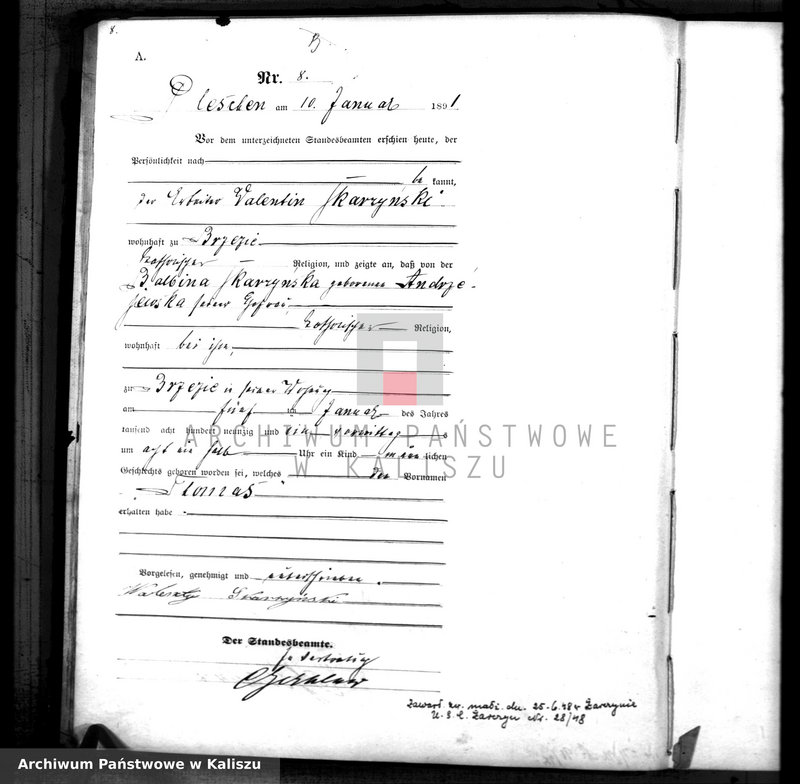 8.
A.
Nr. 8.
Pleschen am 10. Januar 1891
Vor dem unterzeichneten Standesbeamten erschien heute, der
Persönlichkeit nach
be kannt,
der Arbeiter Valentin Skarzyński
wohnhaft zu Brzezie
katholischer Religion, und zeigte an, daß von der
Balbina Skarzyńska geborenen Andrze-
jewska seiner Ehefrau
katholischer Religion,
wohnhaft bei ihm,
zu Brzezie in seiner Wohnung
am fünf ten Januar des Jahres
tausend acht hundert neunzig und ein vormittags
um acht ein halb Uhr ein Kind männ lichen
Geschlechts geboren worden sei, welches den Vornamen
Thomas
erhalten habe
Vorgelesen, genehmigt und unterschrieben.
Walenty Skarzyński
Der Standesbeamte.
In Vertretung
Zawarł zw. małż. dn. 25-6.48 r Żerzynie
U. S. C. Nr. 28/48
ARCHIWUM PAŃSTWOWE
W KALISZU
Archiwum Państwowe w Kaliszu